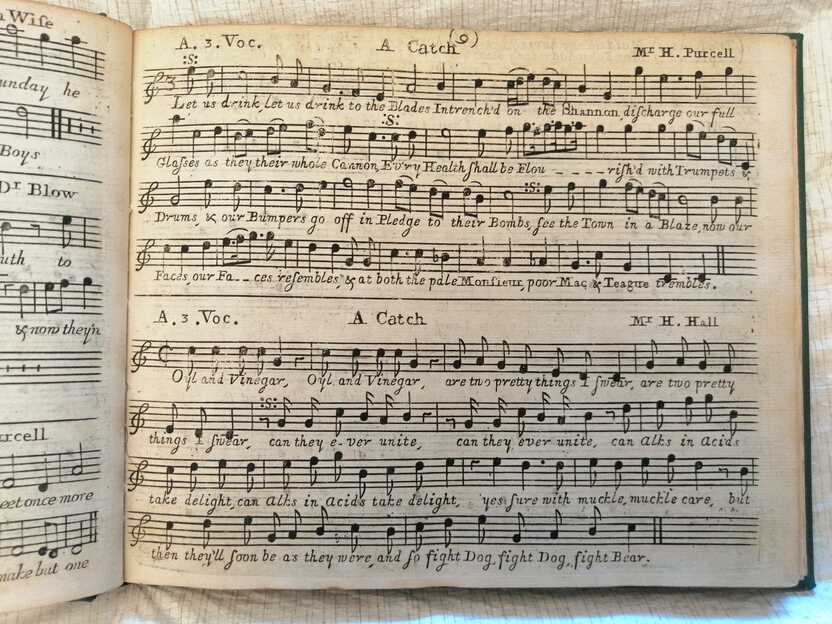 Wiſe
unday he
Boys
Dr Blow
uth to
& now they'n
urcell
eet once more
make but one
(9)
A. 3. Voc. A Catch Mr H. Purcell
:S:
Let us drink, let us drink to the Blades Intrench'd on the Shannon, diſcharge our full
:S:
Glaſſes as they their whole Cannon, Ev'ry Health ſhall be Flou _ _ _ _ riſh'd with Trumpets &
:S:
Drums, & our Bumpers go off in Pledge to their Bombs, ſee the Town in a Blaze, now our
Faces, our Fa _ _ ces reſembles, & at both the pale Monſieur, poor Mac & Teague trembles.
A. 3. Voc. A Catch Mr H. Hall
Oyl and Vinegar, Oyl and Vinegar, are two pretty things I ſwear, are two pretty
:S:
things I ſwear, can they e-ver unite, can they ever unite, can Alks in Acids
take delight, can Alks in Acids take delight, yes ſure with muckle, muckle care, but
then they'll ſoon be as they were, and ſo fight Dog, fight Dog, fight Bear.